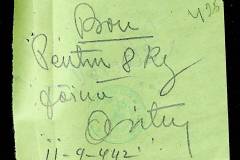 Bon
Pentru 8 Kg
făina
11-9-942